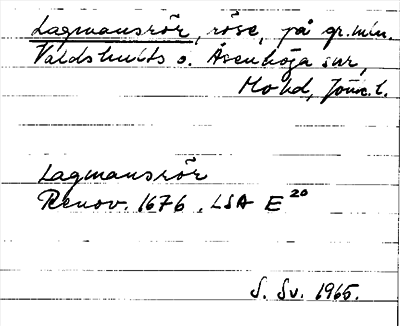 Lagmansrör, röse, på gr. mln.
Valdshults o. Åsenhöga snr,
Mo hd, Jönk. l.
Lagmansrör
Renov. 1676. LSA E 20
S. Sv. 1965.